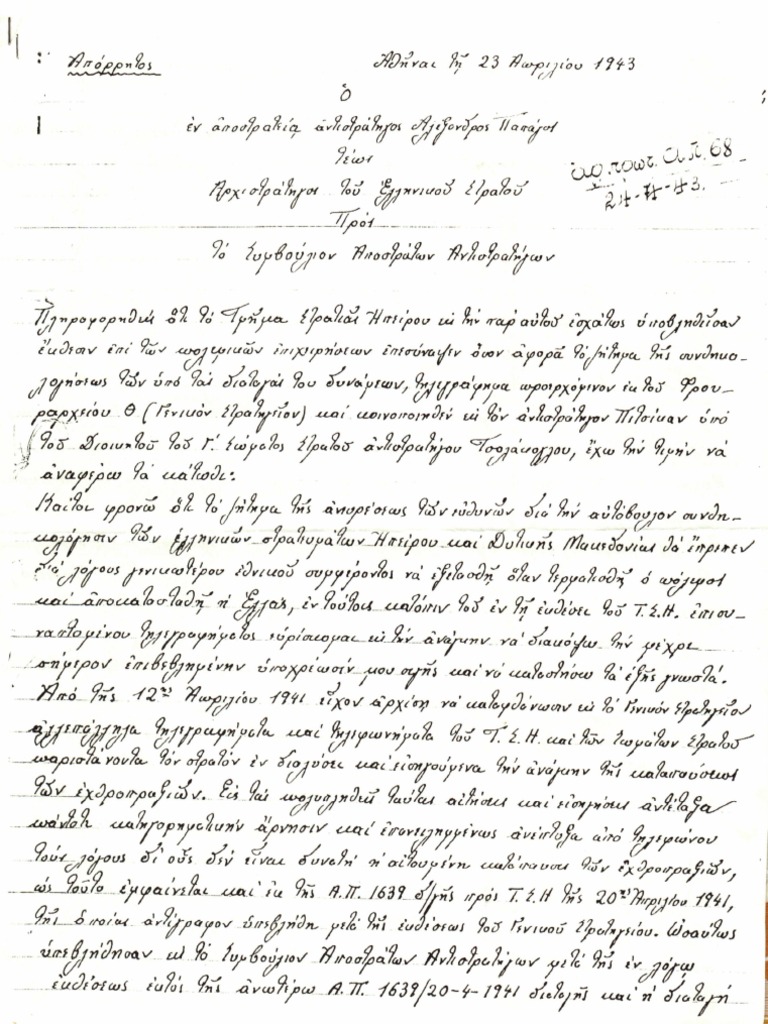 Απόρρητος
Αθήναι τῇ 23 Απριλίου 1943
Ὁ
ἐν ἀποστρατείᾳ ἀντιστράτηγος Αλέξανδρος Παπάγος
τέως
Αρχιστράτηγος τοῦ Ἑλληνικοῦ Στρατοῦ
Πρός
τὸ Συμβούλιον Αποστράτων Αντιστρατήγων
ἀρ. πρωτ. Α.Π. 68
24-4-43.
Πληροφορηθείς ὅτι τὸ Τμῆμα Στρατιᾶς Ηπείρου εἰς τὴν παρ' αὐτοῦ ἐσχάτως ὑποβληθεῖσαν
ἔκθεσιν ἐπί τῶν πολεμικῶν ἐπιχειρήσεων ἐπεσύναψεν ὅσον ἀφορᾷ τὸ ζήτημα τῆς συνθηκο-
λογήσεως τῶν ὑπό τάς διαταγάς του δυνάμεων, τηλεγράφημα προερχόμενον ἐκ τοῦ Φρου-
ραρχείου Θ (Γενικόν Στρατηγεῖον) καί κοινοποιηθέν εἰς τόν ἀντιστράτηγον Πιτσίκαν ὑπό
τοῦ Διοικητοῦ τοῦ Γ΄ Σώματος Στρατοῦ ἀντιστρατήγου Τσολάκογλου, ἔχω τήν τιμήν νά
ἀναφέρω τά κάτωθι:
Καίτοι φρονῶ ὅτι τὸ ζήτημα τῆς ἀνευρέσεως τῶν εὐθυνῶν διά τήν αὐτόβουλον συνθη-
κολόγησιν τῶν ἑλληνικῶν στρατευμάτων Ηπείρου καί Δυτικῆς Μακεδονίας θά ἔπρεπεν
διά λόγους γενικωτέρου ἐθνικοῦ συμφέροντος νά ἐξετασθῇ ὅταν τερματισθῇ ὁ πόλεμος
καί ἀποκατασταθῇ ἡ Ἑλλάς, ἐν τούτοις κατόπιν τοῦ ἐν τῇ ἐκθέσει τοῦ Τ.Σ.Η. ἐπισυ-
ναπτομένου τηλεγραφήματος εὑρίσκομαι εἰς τήν ἀνάγκην νά διακόψω τήν μέχρι
σήμερον ἐπιβεβλημένην ὑποχρέωσίν μου σιγῆς καί νά καταστήσω τά ἑξῆς γνωστά.
Από τῆς 12ης Απριλίου 1941 εἶχον ἀρχίσῃ νά καταφθάνωσιν εἰς τό Γενικόν Στρατηγεῖον
ἀλλεπάλληλα τηλεγραφήματα καί τηλεφωνήματα τοῦ Τ.Σ.Η. καί τῶν Σωμάτων Στρατοῦ
παριστάνοντα τόν στρατόν ἐν διαλύσει καί εἰσηγούμενα τήν ἀνάγκην τῆς καταπαύσεως
τῶν ἐχθροπραξιῶν. Εἰς τάς πολυπληθεῖς ταύτας αἰτήσεις καί εἰσηγήσεις ἀντέταξα
πάντοτε κατηγορηματικήν ἄρνησιν καί ἐπανειλημμένως ἀνέπτυξα ἀπό τηλεφώνου
τούς λόγους δι' οὕς δέν εἶναι δυνατή ἡ αἰτουμένη κατάπαυσις τῶν ἐχθροπραξιῶν,
ὡς τοῦτο ἐμφαίνεται καί ἐκ τῆς Α.Π. 1639 δ/γῆς πρός Τ.Σ.Η τῆς 20ης Απριλίου 1941,
τῆς ὁποίας ἀντίγραφον ὑπεβλήθη μετά τῆς ἐκθέσεως τοῦ Γενικοῦ Στρατηγείου. Ὡσαύτως
ὑπεβλήθησαν εἰς τό Συμβούλιον Αποστράτων Αντιστρατήγων μετά τῆς ἐν λόγῳ
ἐκθέσεως ἐκτός τῆς ἀνωτέρω Α.Π. 1639/20-4-1941 διαταγῆς καί ἡ διαταγή